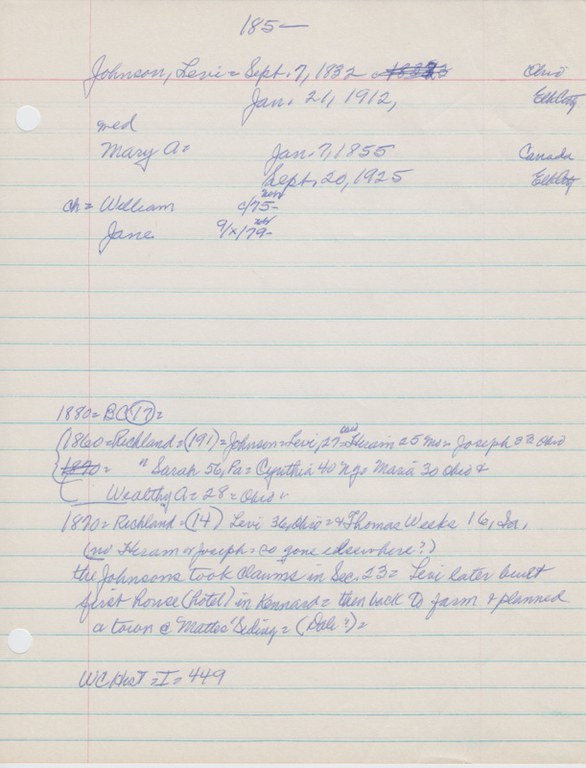 185-
Johnson, Levi = Sept. 7, 1832 Ohio
Jan. 21, 1912, Elk City
med
Mary A = Jan. 7, 1855 Canada
Sept. 20, 1925 Elk City
ch = William c/75-
Jane 9/x/79-
1880 = BC (17) =
1860 = Richland = (191) = Johnson = Levi, 27 = Hiram 25 Ms = Joseph 22 Ohio
1870 = " Sarah 56, Pa = Cynthia 40 Maria 30 Ohio &
Wealthy A = 28 = Ohio "
1870 = Richland = (14) Levi 36, Ohio = & Thomas Weeks 16, Ia,
(no Hiram or Joseph = so gone elsewhere?)
the Johnsons took claims in Sec. 23 = Levi later built
first house (hotel) in Kennard = then back to farm & planned
a town @ Mattes' Siding = (Dale?) =
WC Hist = I = 449